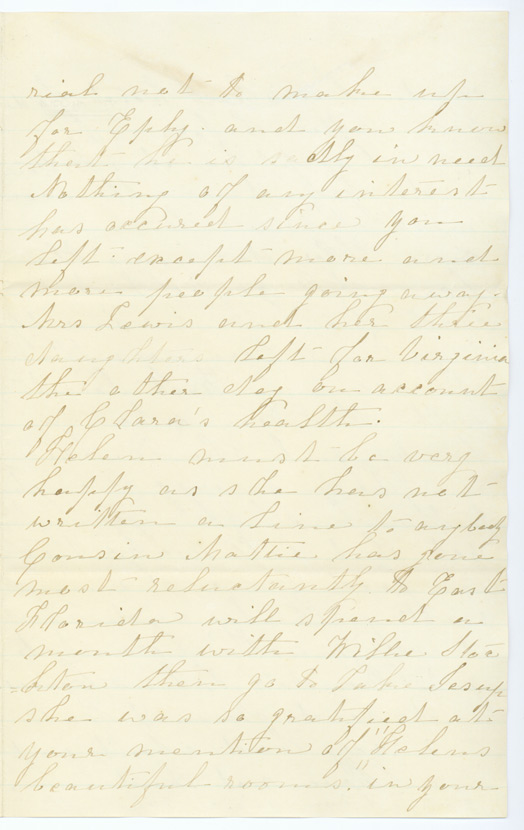 rial not to make up
for Ephy. and you know
that he is sadly in need
Nothing of any interest
has occured since you
left except more and
more people going away.
Mrs Lewis and her three
daughters left for Virginia
the other day on account
of Clara's health.
Helen must be very
happy as she has not
written a line to anybody
Cousin Mattie has gone
most reluctantly to East
Florida will spend a
month with Willie Stoc
=kton then go to Lake Jesup
she was so gratified at
your mention of "Helens
beautiful rooms." in your